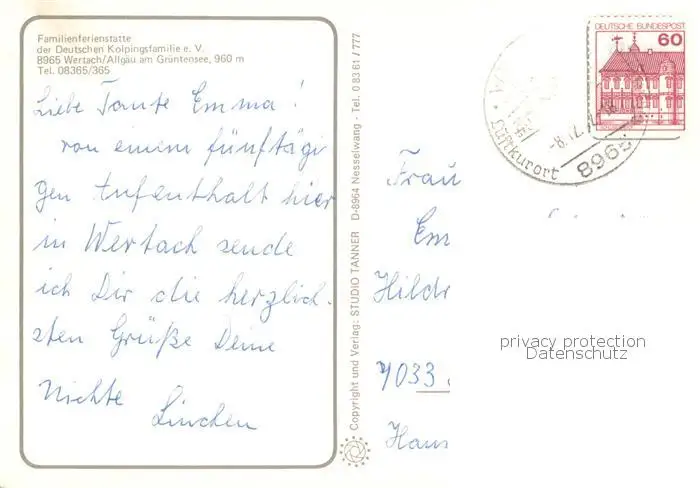 Familienferienstätte
der Deutschen Kolpingsfamilie e. V.
8965 Wertach/Allgäu am Grüntensee, 960 m
Tel. 08365/365
Liebe Tante Emma!
von einem fünftägi
gen Aufenthalt hier
in Wertach sende
ich Dir die herzlich-
sten Grüße Deine
Nichte
Linchen
Copyright und Verlag: STUDIO TANNER D-8964 Nesselwang - Tel. 0 83 61 / 777
DEUTSCHE BUNDESPOST
60
Luftkurort
8965
Frau
Em
Hildr
privacy protection
Datenschutz
7033
Haus